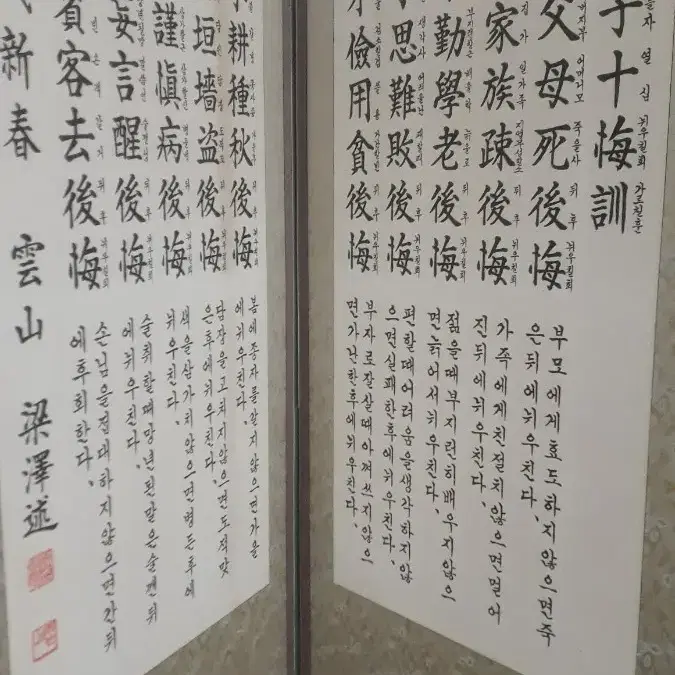 子十悔訓
열 십 뉘우칠회 가르칠훈
父母死後悔
어머니모 죽을사 뒤 후 뉘우칠회
家族疎後悔
뒤 후 뉘우칠회
勤學老後悔
뒤 후 뉘우칠회
思難敗後悔
뒤 후 뉘우칠회
儉用貧後悔
뒤 후 뉘우칠회
부모에게효도하지않으면죽
은뒤에뉘우친다、
가족에게친절치않으면멀어
진뒤에뉘우친다、
젊을때부지런히배우지않으
면늙어서뉘우친다、
편할때어려움을생각하지않
으면실패한후에뉘우친다、
부자로잘살때아껴쓰지않으
면가난한후에뉘우친다、
耕種秋後悔
垣墻盜後悔
謹愼病後悔
妄言醒後悔
賓客去後悔
봄에종자를갈지않으면가을
에뉘우친다、
담장을고치지않으면도적맞
은후에뉘우친다、
색을삼가치않으면병든후에
뉘우친다、
술취할때망년된말은술깬뒤
에뉘우친다、
손님을접대하지않으면간뒤
에후회한다、
新春 雲山 梁澤述